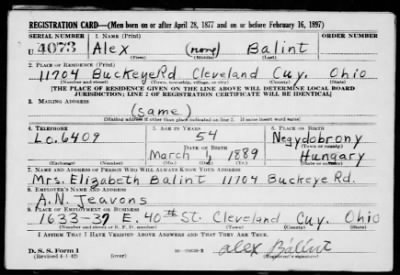 REGISTRATION CARD—(Men born on or after April 28, 1877 and on or before February 16, 1897)
SERIAL NUMBER 1. NAME (Print) ORDER NUMBER
U 4073 Alex (none) Balint
(First) (Middle) (Last)
2. PLACE OF RESIDENCE (Print)
11704 Buckeye Rd Cleveland Cuy. Ohio
(Number and street) (Town, township, village, or city) (County) (State)
[THE PLACE OF RESIDENCE GIVEN ON THE LINE ABOVE WILL DETERMINE LOCAL BOARD
JURISDICTION; LINE 2 OF REGISTRATION CERTIFICATE WILL BE IDENTICAL]
3. MAILING ADDRESS
(same)
[Mailing address if other than place indicated on line 2. If same insert word same]
4. TELEPHONE 5. AGE IN YEARS 6. PLACE OF BIRTH
Lo. 6409 54 Negydobrony
DATE OF BIRTH (Town or county)
March 1 1889 Hungary
(Exchange) (Number) (Mo.) (Day) (Yr.) (State or country)
7. NAME AND ADDRESS OF PERSON WHO WILL ALWAYS KNOW YOUR ADDRESS
Mrs. Elizabeth Balint 11704 Buckeye Rd.
8. EMPLOYER'S NAME AND ADDRESS
A. N. Jeavons
9. PLACE OF EMPLOYMENT OR BUSINESS
1633-37 E. 40th St. Cleveland Cuy. Ohio
(Number and street or R. F. D. number) (Town) (County) (State)
I AFFIRM THAT I HAVE VERIFIED ABOVE ANSWERS AND THAT THEY ARE TRUE.
D. S. S. Form 1
(Revised 4-1-42) (over) Alex Balint